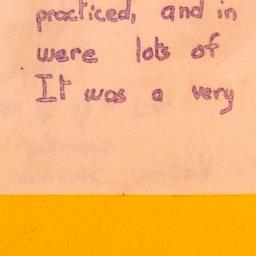 practiced, and in
were lots of
It was a very